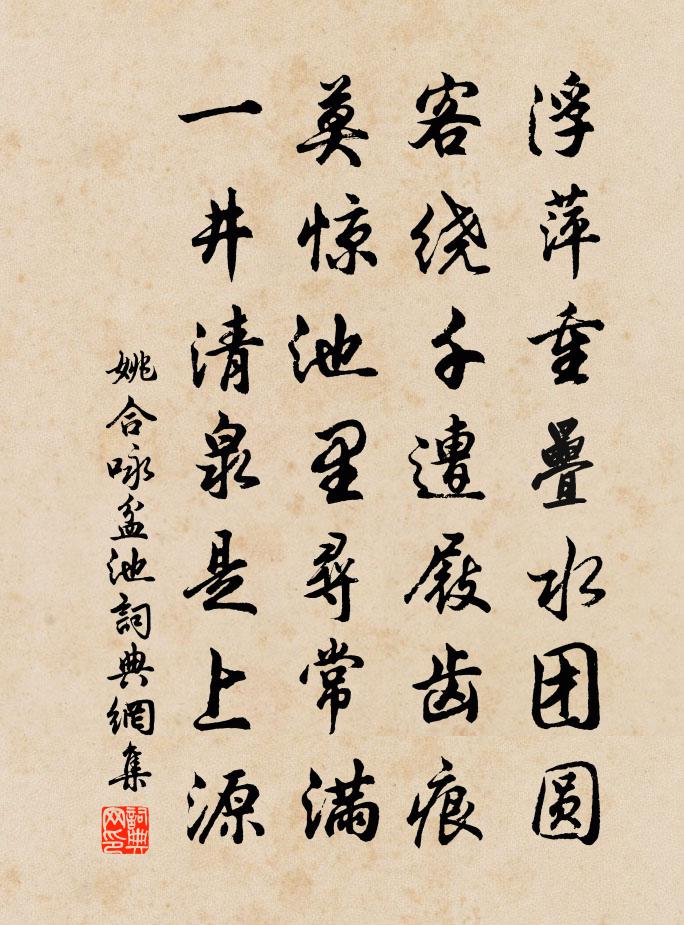 浮萍重疊水团圆
客绕千遭屐齿痕
莫惊池里尋常满
一井清泉是上源
姚合咏盆池詞典網集
詞典网印